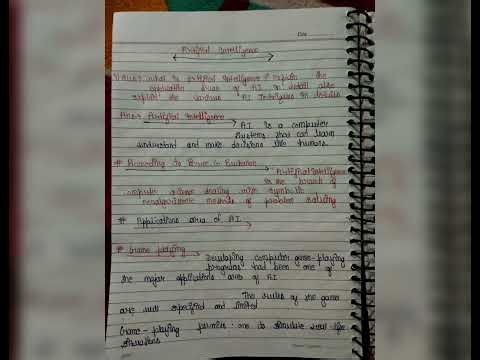 Date
Artificial Intelligence
What is artificial Intelligence? Explain the
application areas of AI in detail also
explain the various AI Techniques in details
Ans:- Artificial Intelligence
A.I is a computer
systems that can learn
understand and make decisions like humans.
# According to
Artificial Intelligence
is the branch of
computer science dealing with symbolic
methods of problem solving
# Applications area of A.I.
# Game playing
Developing computer game-playing
programs had been one of
the major applications area of A.I
The rules of the game
are well specified and limited
Game-playing one to simulate real life
situations